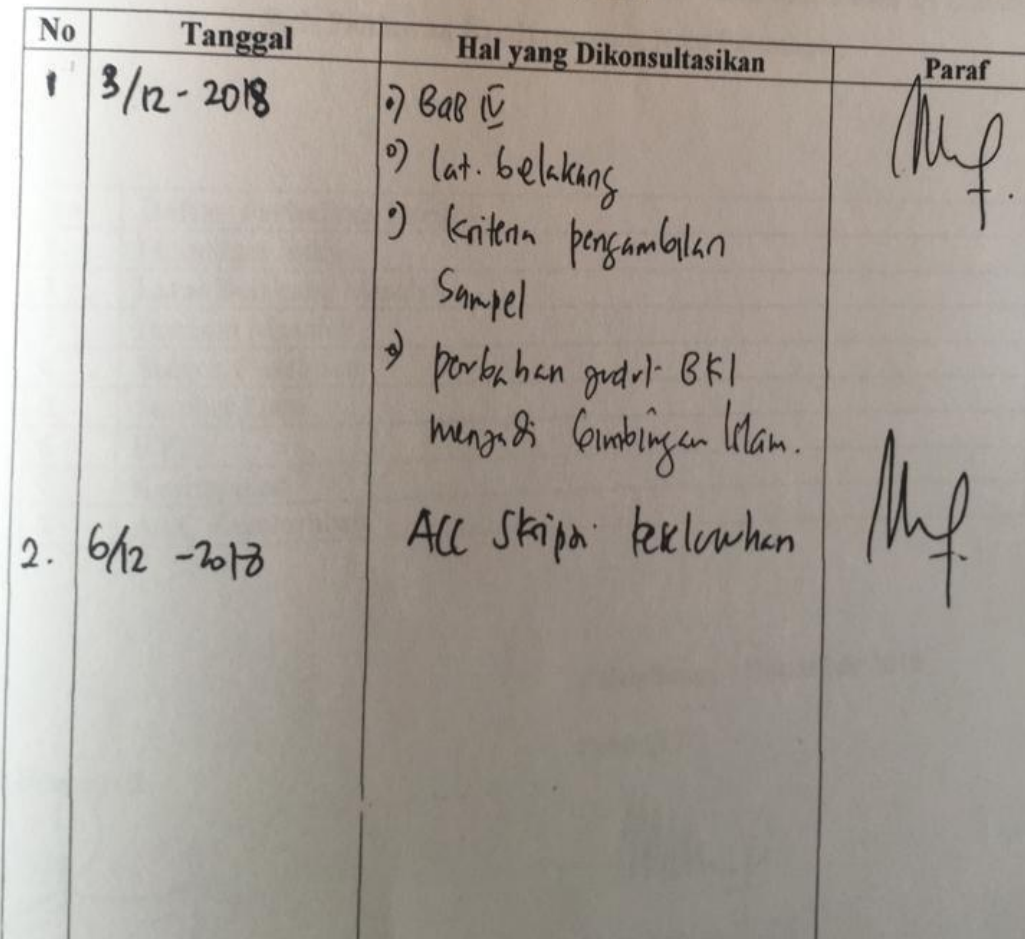 No Tanggal Hal yang Dikonsultasikan Paraf
1 3/12 - 2018 •) BaB IV
•) lat. belakang
•) kriteria pengambilan
Sampel
•) perbahan judul BKI
menjadi bimbingan Islam.
2. 6/12 - 2018 ACC Skripsi keseluruhan